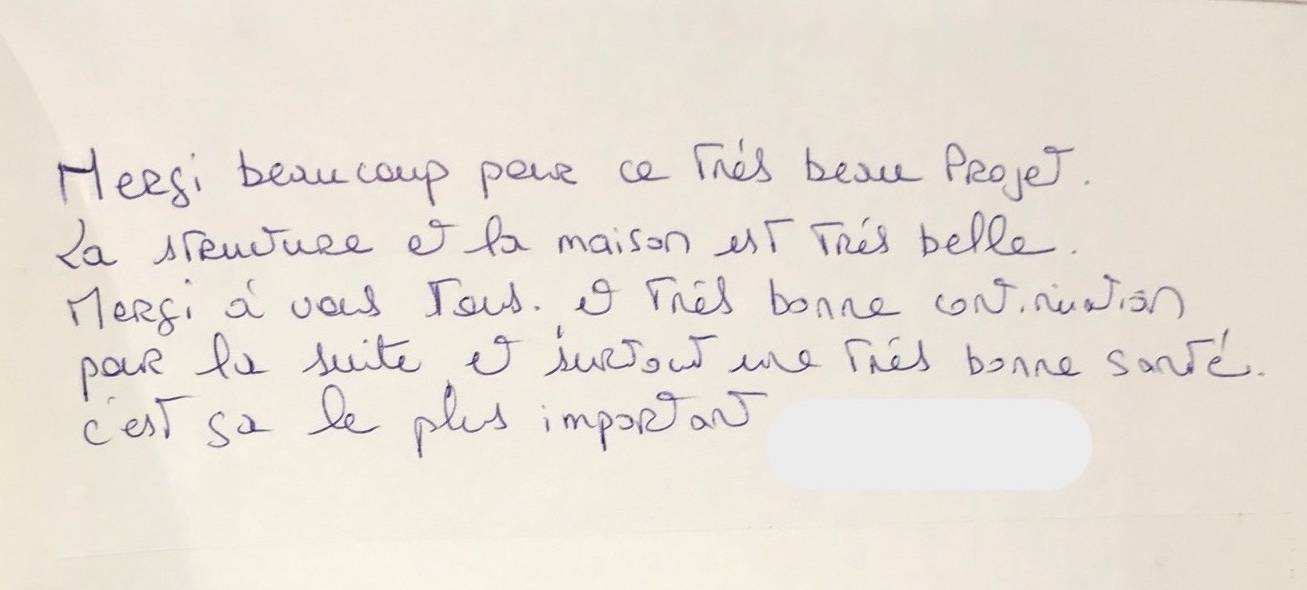 Merçi beaucoup pour ce Trés beau Projet.
La structure et la maison est Trés belle.
Merçi à vous Tous. et Trés bonne continuation
pour la suite et surtout une Trés bonne santé.
c'est sa le plus important